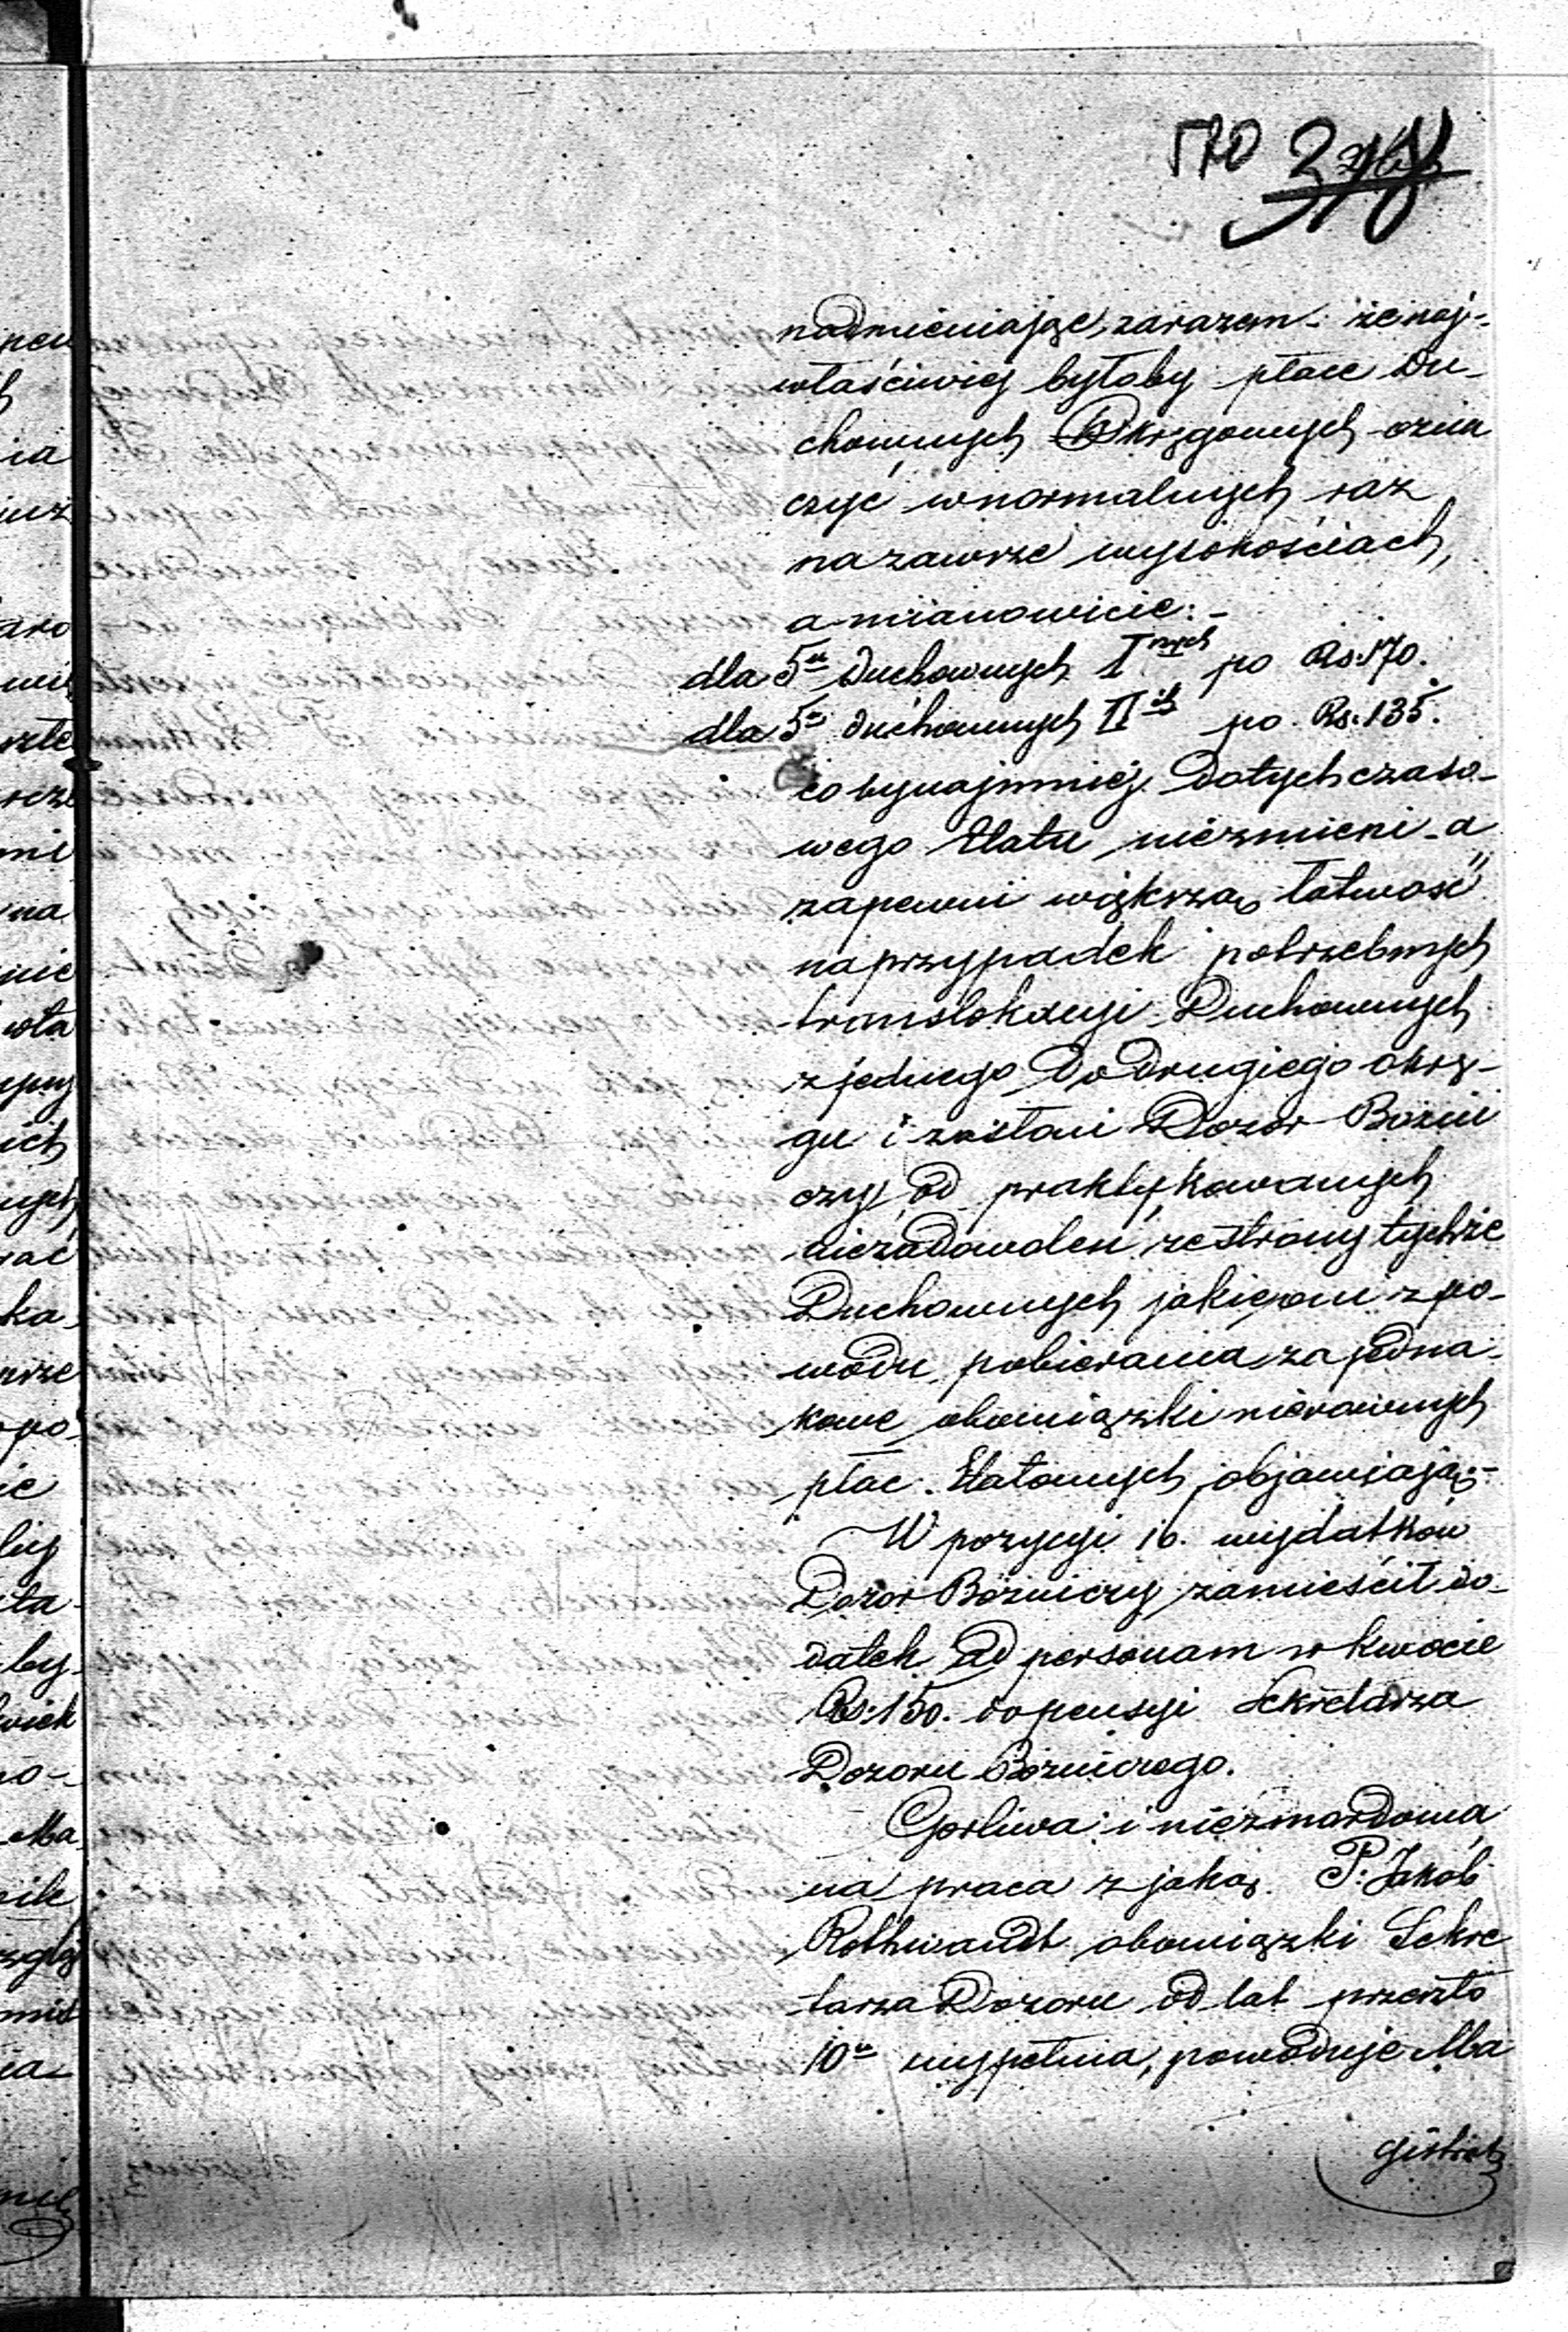 170
nadmieniając zarazem że naj-
właściwiej byłoby płace Du-
chownych Okręgowych ozna
czyć w normalnych raz
na zawsze wysokościach,
a mianowicie:-
dla 5u Duchownych I nych po Rs. 170.
dla 5u duchownych II ch po Rs. 135.
co bynajmniej dotychczaso-
wego Etatu niezmieni - a
zapewni większą łatwość
na przypadek potrzebnych
translokacyi Duchownych
z jednego do drugiego okrę-
gu i zostani Dozór Bożni
czy od praktykowanych
niezadowoleń ze strony tychże
Duchownych jakie oni z po-
wodu pobierania za jedna-
kowe obowiązki nierównych
płac Etatowych objawiają.-
W pozycyi 16. wydatków
Dozór Bożniczy zamieścił do-
datek ad personam w kwocie
Rs. 150. do pensyi Sekretarza
Dozoru Bożniczego.
Gorliwa i niezmordowa
na praca z jaką P. Jakób
Rothwandt obowiązki Sekre
tarza Dozoru od lat przeszło
10u wypełnia, powoduje Ma
gistrat